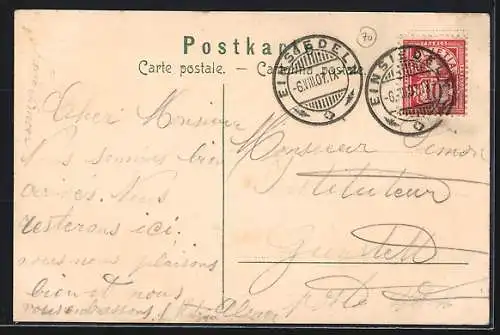 Postkarte
Carte postale. — Cartolina postale.
70
EINSIEDELN
-6.VIII.07.
EINSIEDELN
-6.VIII.07.
FRANCO
HELVETIA
Cher Monsieur
Nous sommes bien
arrivés. Nous
resterons ici.
nous nous plaisons
bien et nous
vous embrassons
Monsieur Simon
Instituteur
Alsace